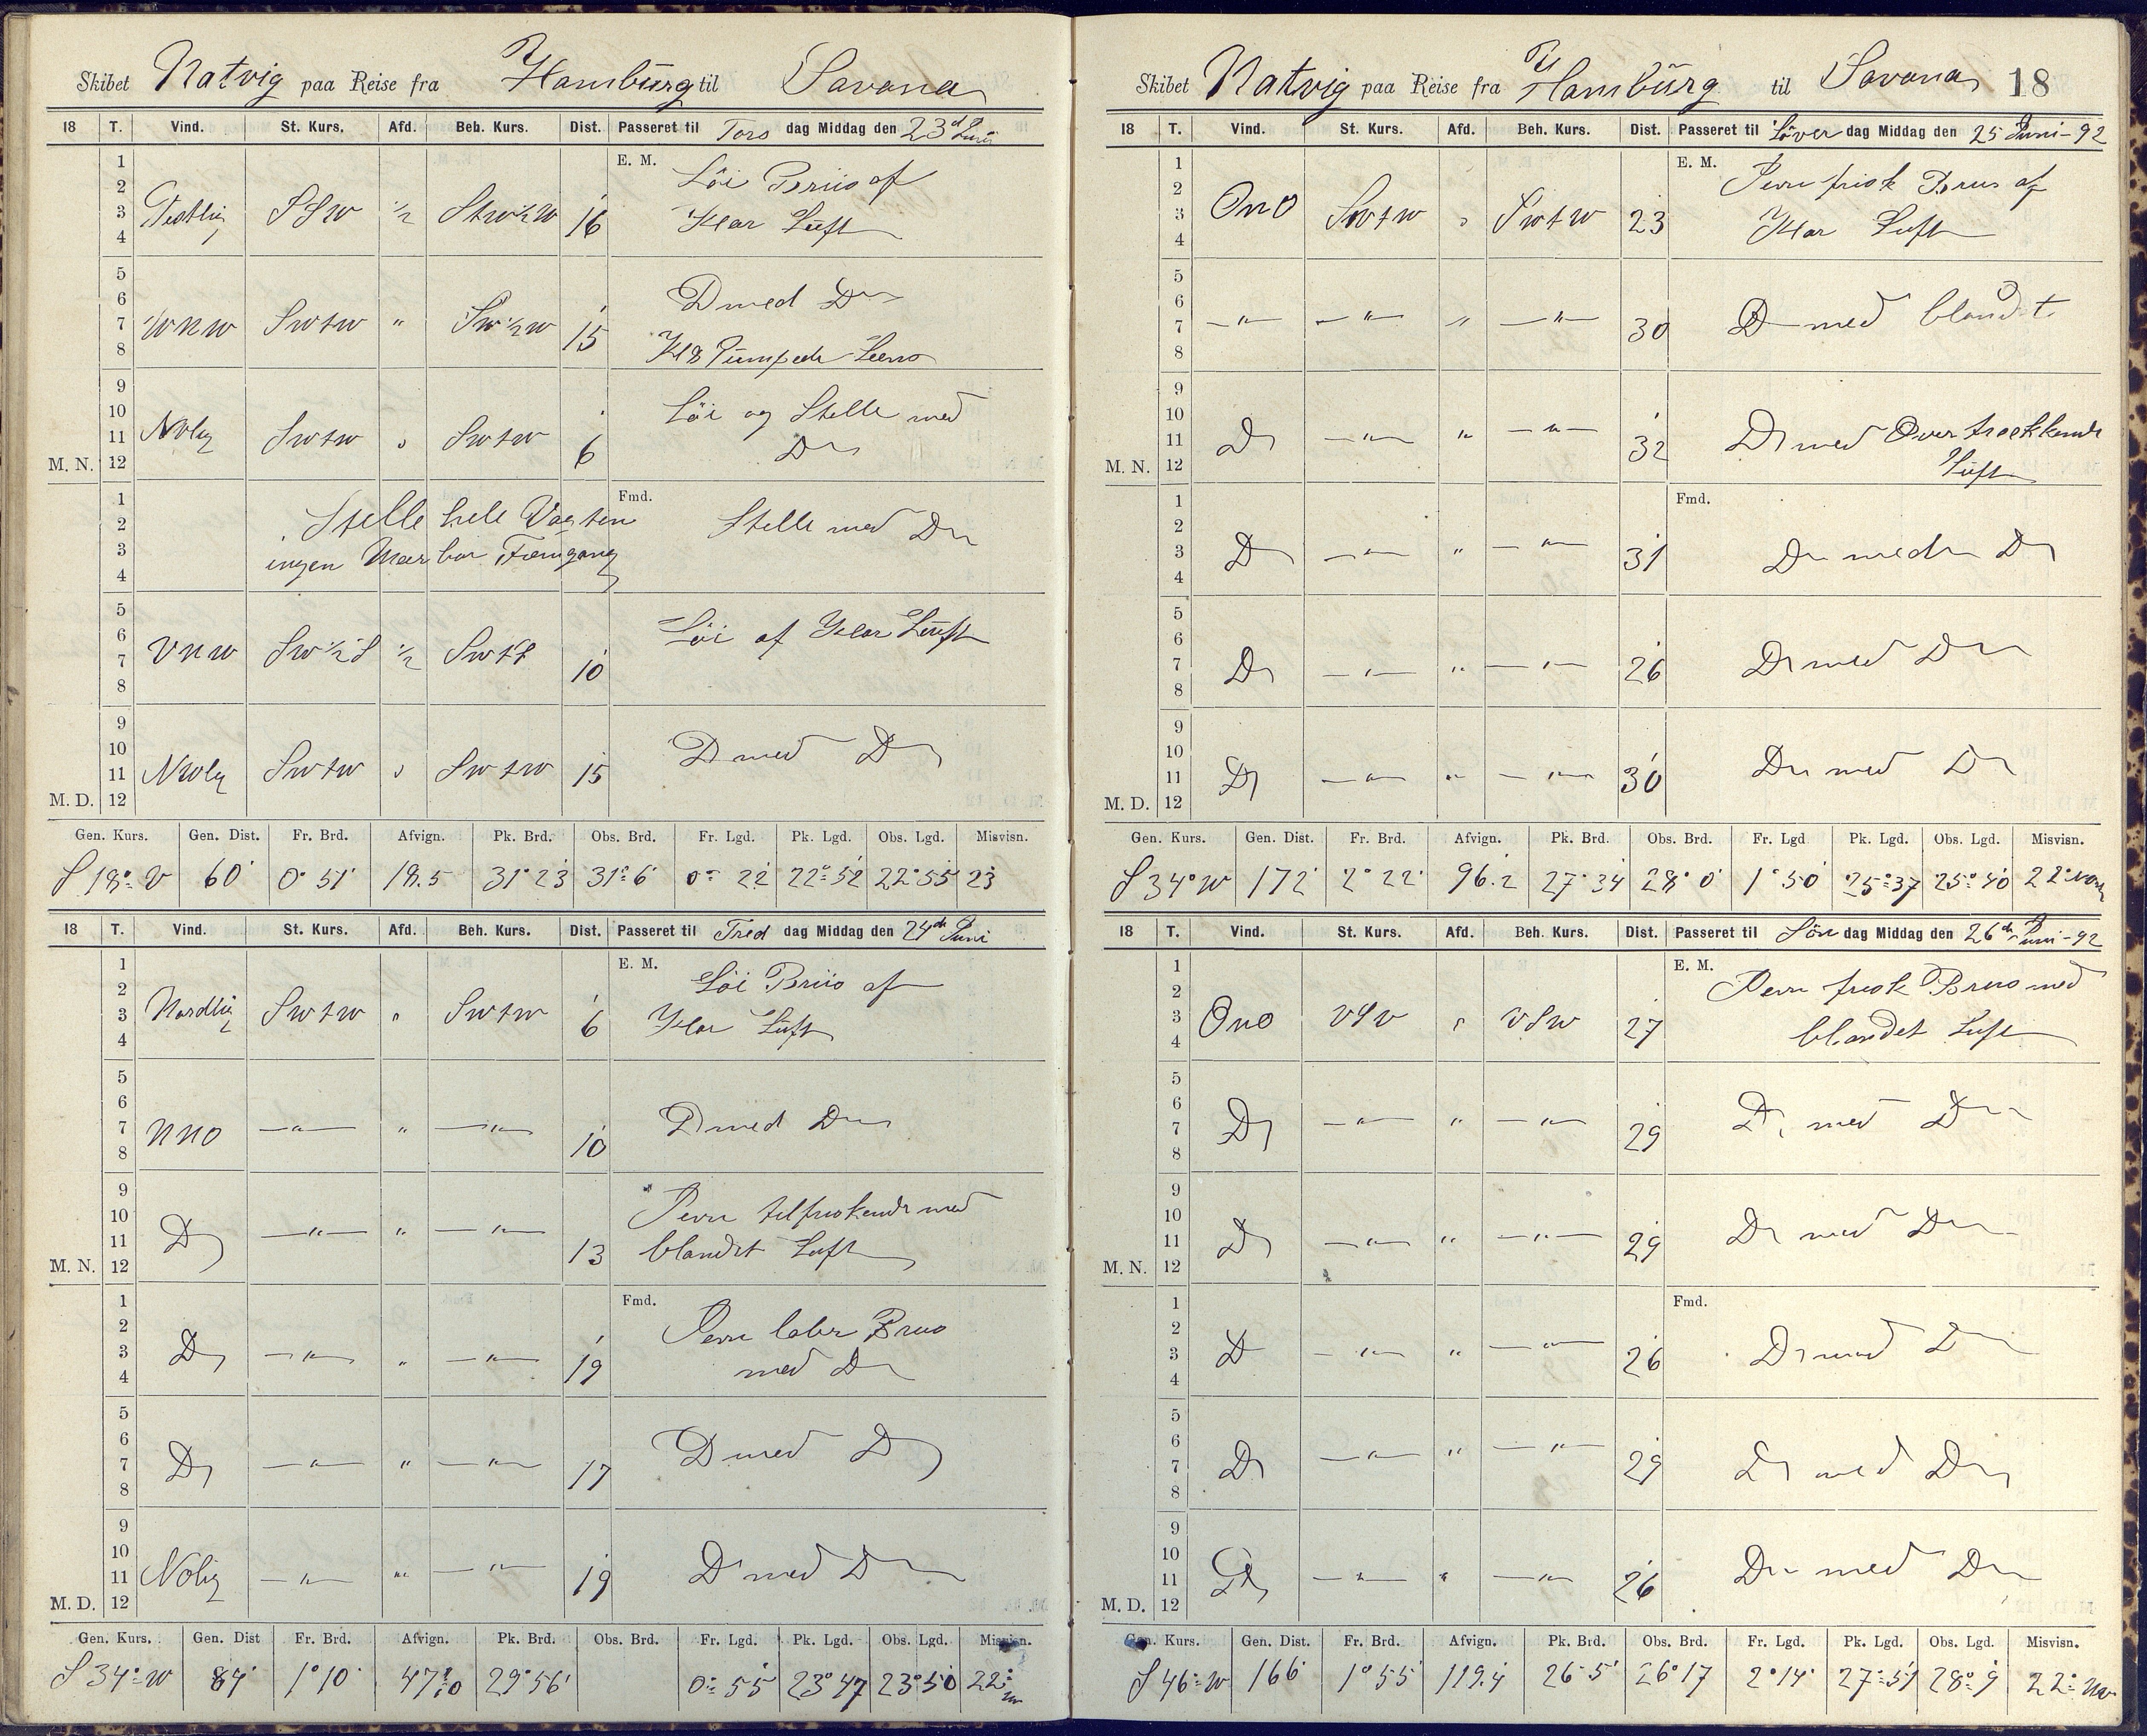 Skibet Natvig paa Reise fra Hamburg til Savana
18 T. Vind. St. Kurs. Afd. Beh. Kurs. Dist. Passeret til Tors dag Middag den 23d Juni
E. M.
1 2 3 4 Vestlig SSW ½ StW½W 16 Löi Briis af
Klar Luft
5 6 7 8 WNW SWtW " SW½W 15 D med Do
Kl 8 Pumpede Læns
9 10 11 12 M. N. NOlig SWtW " SWtW 6 Löi og Stelle med
Do
Fmd.
1 2 3 4 Stelle hele Vagten Stelle med Do
ingen Mærbar Fremgang
5 6 7 8 VNW SW½S ½ SWtS 10 Löi af Klar Luft
9 10 11 12 M. D. NWlig SWtW " SWtW 15 D med Do
Gen. Kurs. Gen. Dist. Fr. Brd. Afvign. Pk. Brd. Obs. Brd. Fr. Lgd. Pk. Lgd. Obs. Lgd. Misvisn.
S 18° V 60' 0° 51' 18.5 31° 23 31° 6' 0° 22 22° 52 22° 55 23
18 T. Vind. St. Kurs. Afd. Beh. Kurs. Dist. Passeret til Fred dag Middag den 24de Juni
E. M.
1 2 3 4 Nordlig SWtW " SWtW 6 Löi Briis af
Klar Luft
5 6 7 8 NNO —"— " —"— 10 D med Do
9 10 11 12 M. N. Do —"— " —"— 13 Jevn tilfriskende med
blandet Luft
Fmd.
1 2 3 4 Do —"— " —"— 19 Jevn laber Briis
med Do
5 6 7 8 Do —"— " —"— 17 D med Do
9 10 11 12 M. D. NOlig —"— " —"— 19 D med Do
Gen. Kurs. Gen. Dist Fr. Brd. Afvign. Pk. Brd. Obs. Brd. Fr. Lgd. Pk. Lgd. Obs. Lgd. Misvisn.
S 34° W 84' 1° 10' 47.0 29° 56' 0° 55' 23° 47 23° 50 22°
Skibet Natvig paa Reise fra Hamburg til Savana 18
18 T. Vind. St. Kurs. Afd. Beh. Kurs. Dist. Passeret til Löver dag Middag den 25 Juni - 92
E. M.
1 2 3 4 ONO SWtW " SWtW 23 Jevn frisk Briis af
Klar Luft
5 6 7 8 —"— —"— " —"— 30 D med blandet
9 10 11 12 M. N. Do —"— " —"— 32 Do med Overtrækkende
Luft
Fmd.
1 2 3 4 Do —"— " —"— 31 Do med Do
5 6 7 8 Do —"— " —"— 26 Do med Do
9 10 11 12 M. D. Do —"— " —"— 30 Do med Do
Gen. Kurs. Gen. Dist. Fr. Brd. Afvign. Pk. Brd. Obs. Brd. Fr. Lgd Pk. Lgd. Obs. Lgd. Misvisn.
S 34° W 172' 2° 22' 96.2 27° 34 28° 0' 1° 50' 25° 37 25° 40 22°
18 T. Vind. St. Kurs. Afd. Beh. Kurs. Dist. Passeret til Sön dag Middag den 26de Juni - 92
E. M.
1 2 3 4 ONO VSV " VSW 27 Jevn frisk Briis med
blandet Luft
5 6 7 8 Do —"— " —"— 29 Do med Do
9 10 11 12 M. N. Do —"— " —"— 29 Do med Do
Fmd.
1 2 3 4 Do —"— " —"— 26 Do med Do
5 6 7 8 Do —"— " —"— 29 Do med Do
9 10 11 12 M. D. Do —"— " —"— 26 Do med Do
Gen. Kurs. Gen. Dist. Fr. Brd. Afvign. Pk. Brd. Obs. Brd. Fr. Lgd. Pk. Lgd. Obs. Lgd. Misvisn.
S 46° W 166' 1° 55' 119.4 26° 5' 26° 17 2° 14' 27° 51 28° 9 22°